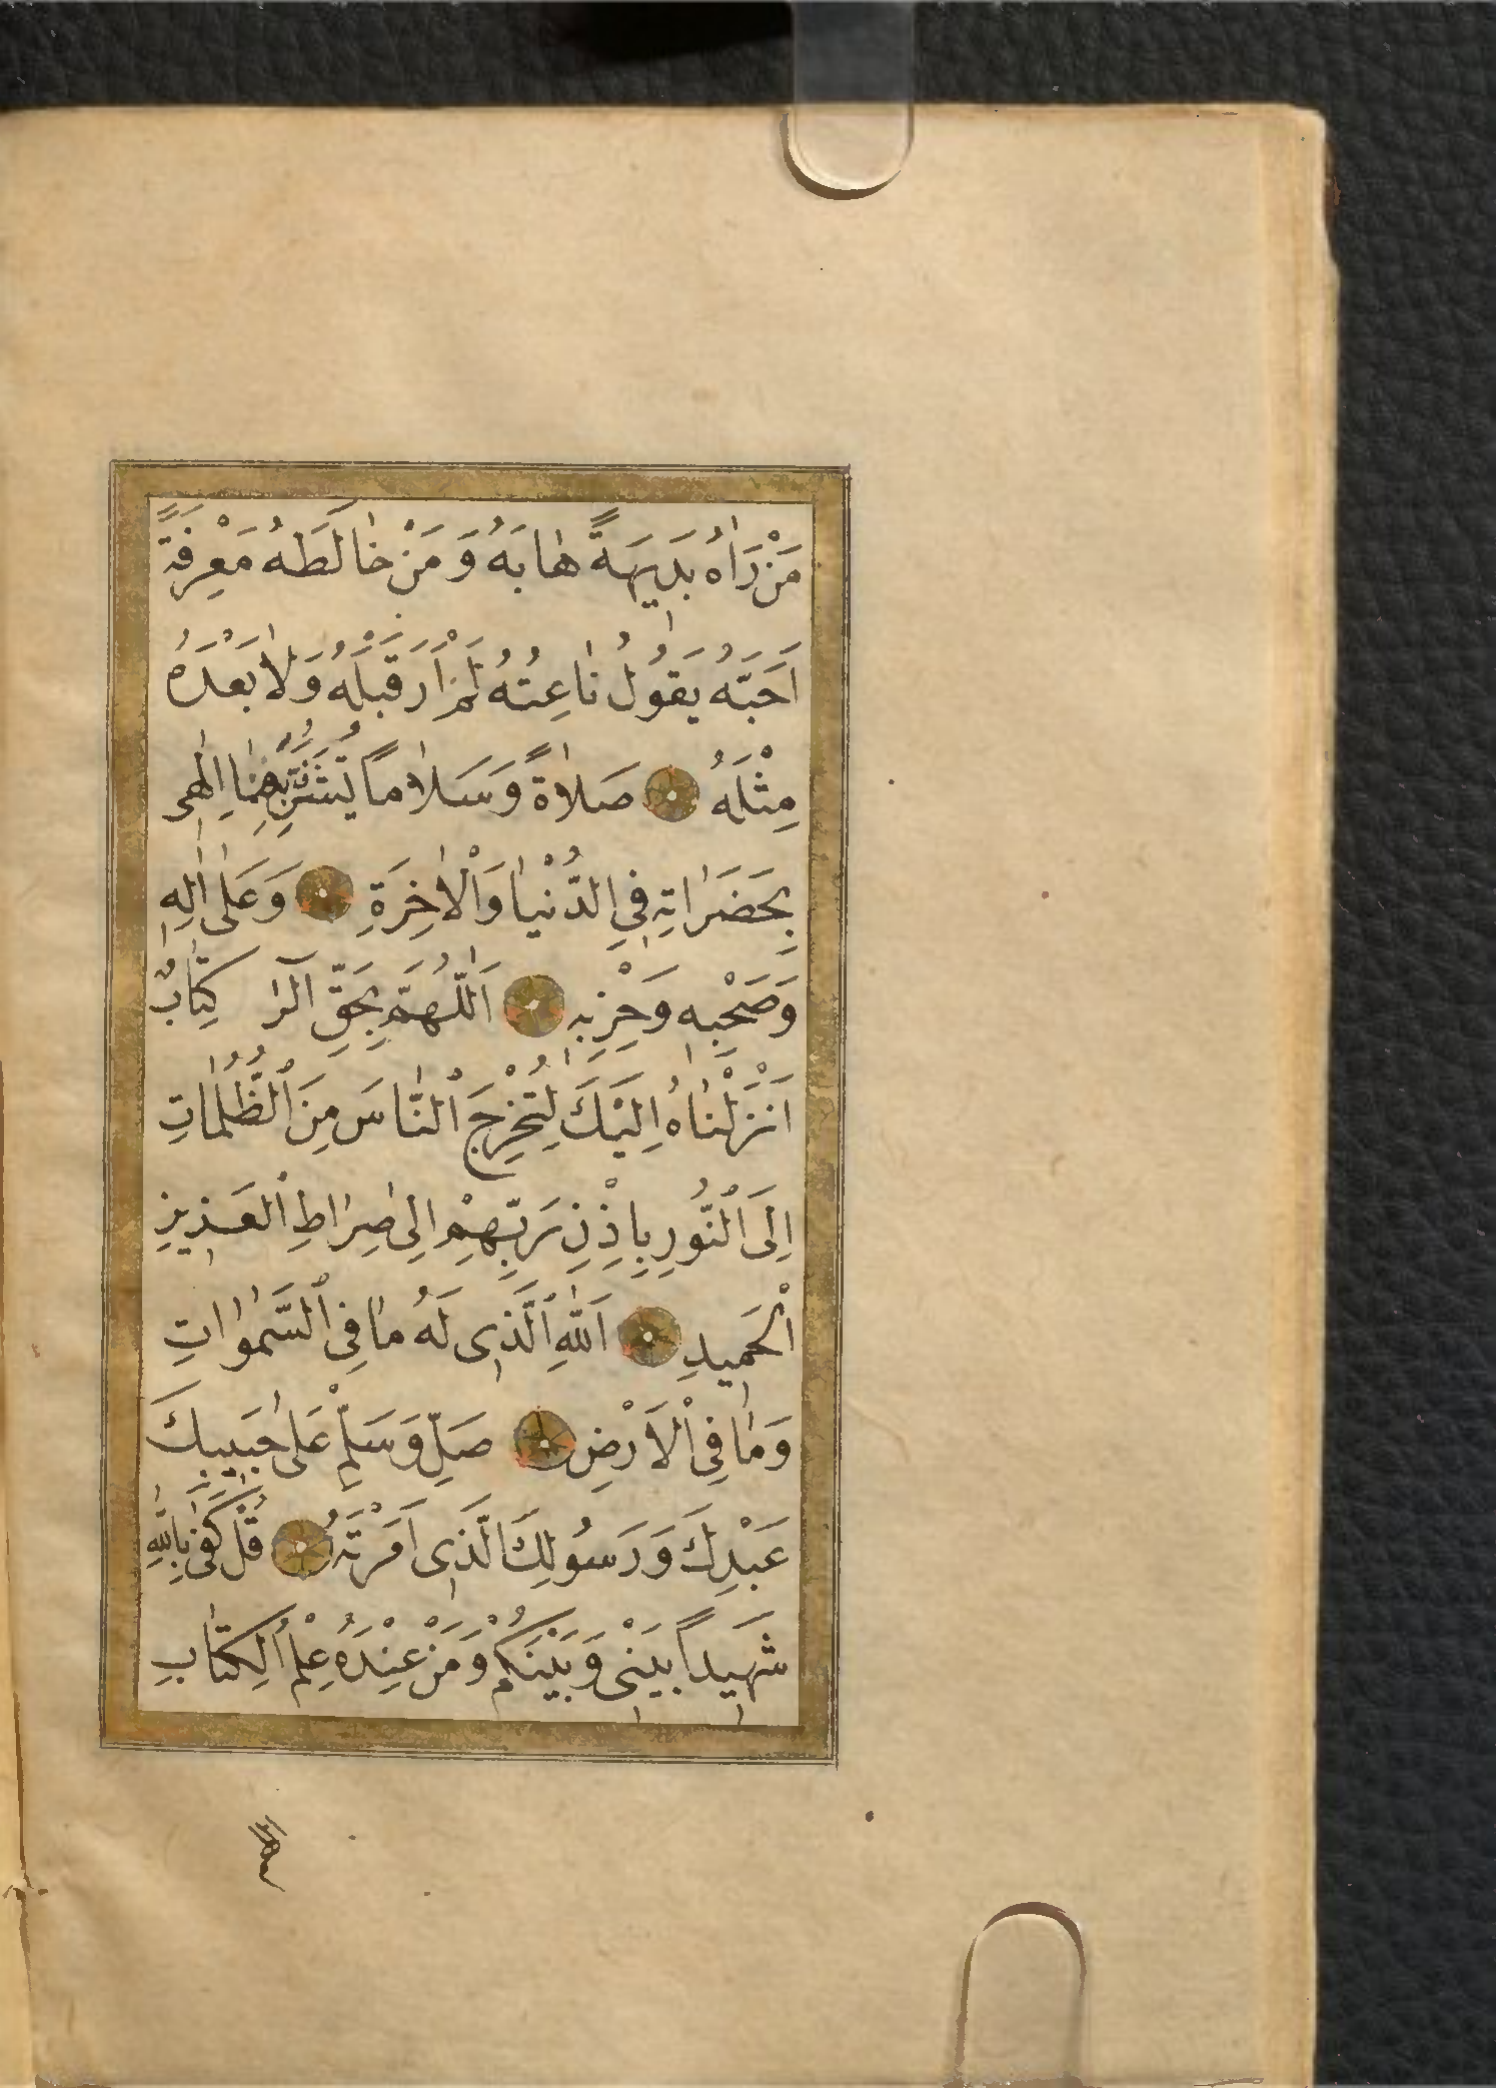 مَنْ رَاٰهُ بَدِيهَةً هٰابَهُ وَمَنْ خٰالَطَهُ مَعْرِفَةً
اَحَبَّهُ يَقُولُ نٰاعِتُهُ لَمْ اَرَ قَبْلَهُ وَلٰا بَعْدَهُ
مِثْلَهُ صَلاٰةً وَسَلاٰمًا بِهِمٰا اِلٰهِى
بِحَضَرٰاتِهِ فِى الدُّنْيٰا وَالْاٰخِرَةِ وَعَلٰى اٰلِهِ
وَصَحْبِهِ وَحِزْبِهِ اَللّٰهُمَّ بِحَقِّ الٓرٰ كِتٰابٌ
اَنْزَلْنٰاهُ اِلَيْكَ لِتُخْرِجَ النّٰاسَ مِنَ الظُّلُمٰاتِ
اِلَى النُّورِ بِاِذْنِ رَبِّهِمْ اِلٰى صِرٰاطِ الْعَزِيزِ
الْحَمِيدِ اَللّٰهِ الَّذِى لَهُ مٰا فِى السَّمٰوٰاتِ
وَمٰا فِى الْاَرْضِ صَلِّ وَسَلِّمْ عَلٰى حَبِيبِكَ
عَبْدِكَ وَرَسُولِكَ الَّذِى اَمَرْتَهُ قُلْ كَفٰى بِاللّٰهِ
شَهِيدًا بَيْنِى وَبَيْنَكُمْ وَمَنْ عِنْدَهُ عِلْمُ الْكِتٰابِ